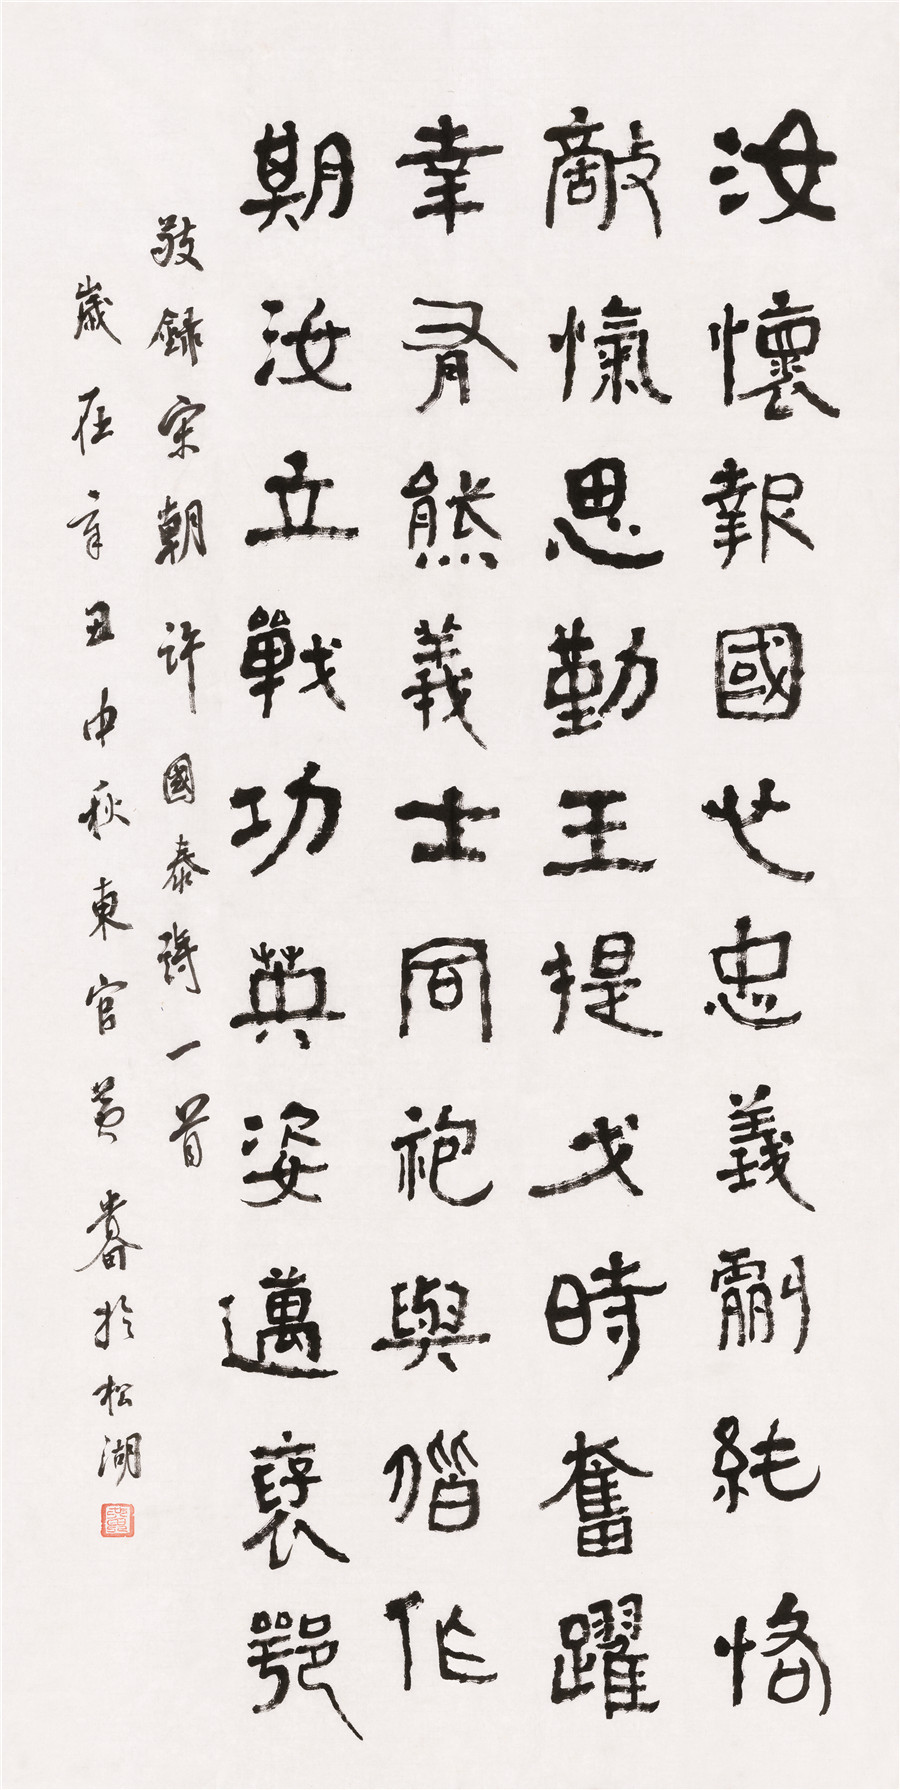 汝懷報國心忠義純恪
敵愾思勤王提戈時奮躍
幸有熊義士同袍與偕作
期汝立戰功英姿邁褒鄂
敬錄宋朝許國泰詩一首
歲在辛丑中秋東官黃於松湖